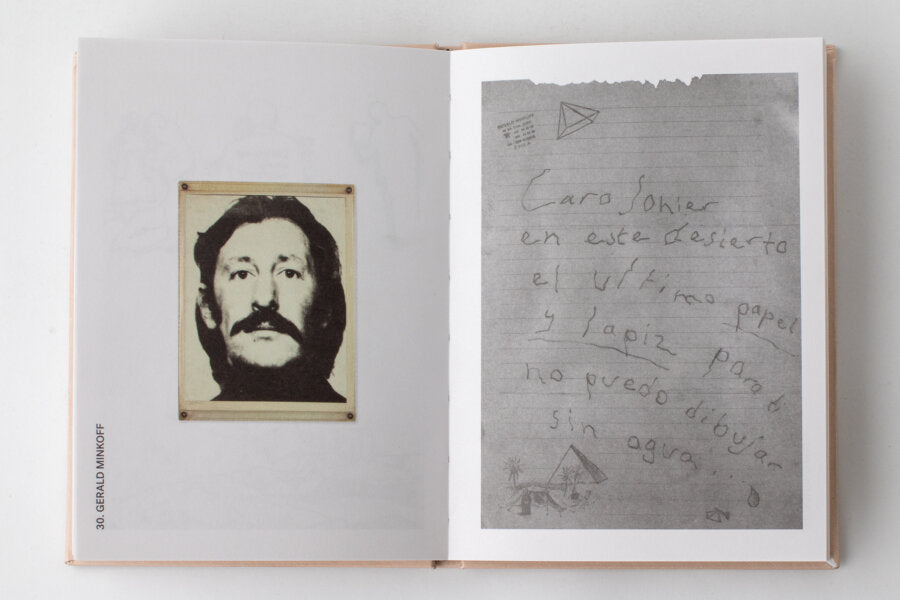 30. GERALD MINKOFF
GERALD MINKOFF
Caro Johier
en este desierto
el último papel
y lapiz para ti
no puedo dibujar
sin agua.